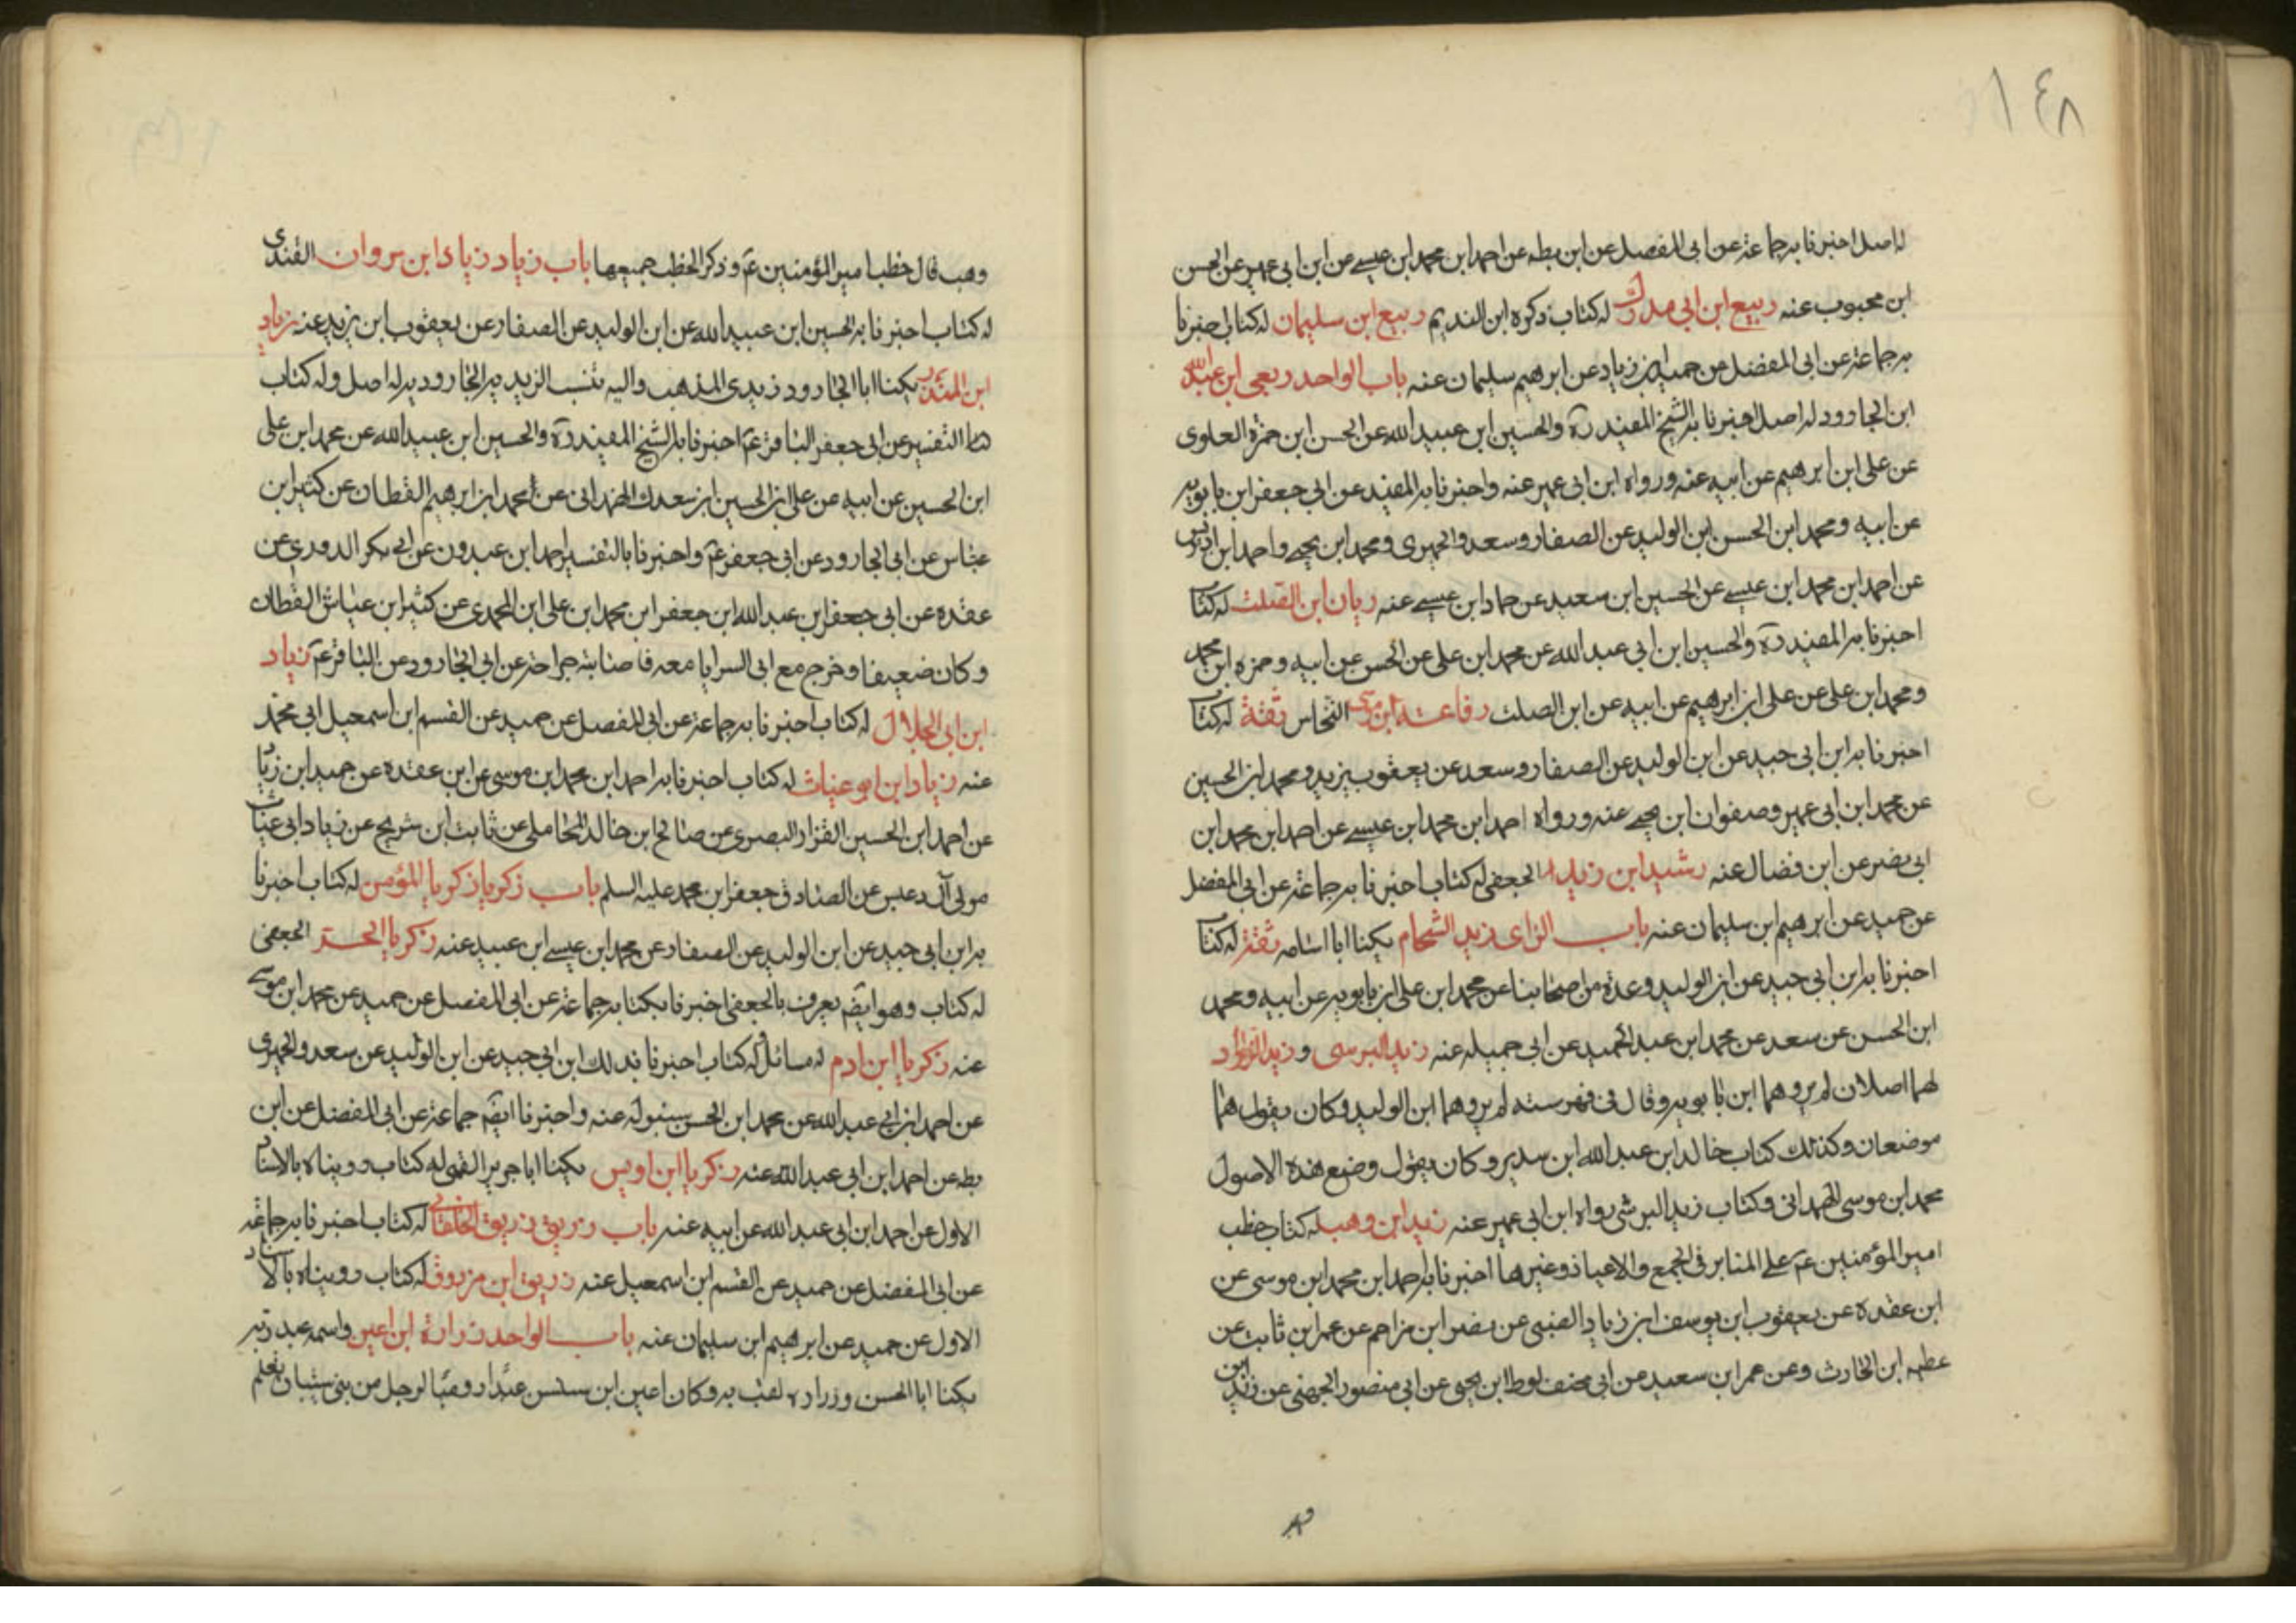 ١٤٨
له اصل اخبرنا به جماعة عن ابى المفضل عن ابن بطه عن احمد ابن محمد ابن عيسى عن ابن ابى عمير عن الحسن
ابن محبوب عنه ربيع ابن ابى مدرك له كتاب ذكره ابن النديم ربيع ابن سليمان له كتاب اخبرنا
به جماعة عن ابى المفضل عن حميد ابن زياد عن ابرهيم سليمان عنه باب الواحد ربعى ابن عبد الله
ابن الجارود له اصل اخبرنا به الشيخ المفيد ره والحسين ابن عبيد الله عن الحسن ابن حمزة العلوى
عن على ابن ابرهيم عن ابيه عنه ورواه ابن ابى عمير عنه واخبرنا به المفيد عن ابى جعفر ابن بابويه
عن ابيه ومحمد ابن الحسن ابن الوليد عن الصفار وسعد والحميرى ومحمد ابن يحيى واحمد ابن ادريس
عن احمد ابن محمد ابن عيسى عن الحسين ابن سعيد عن حماد ابن عيسى عنه ريان ابن الصلت له كتاب
اخبرنا به المفيد ره والحسين ابن ابى عبد الله عن محمد ابن على عن الحسن عن ابيه وحمزه ابن محمد
ومحمد ابن على عن على ابن ابرهيم عن ابيه عن ابن الصلت رفاعة ابن موسى النخاس ثقة له كتاب
اخبرنا به ابن ابى جيد عن ابن الوليد عن الصفار وسعد عن يعقوب يزيد ومحمد ابن الحسين
عن محمد ابن ابى عمير وصفوان ابن يحيى عنه ورواه احمد ابن محمد ابن عيسى عن احمد ابن محمد ابن
ابى نصر عن ابن فضال عنه رشيد ابن زيد الجعفى له كتاب اخبرنا به جماعة عن ابى المفضل
عن حميد عن ابرهيم بن سليمان عنه باب الزاى زيد الشحام يكنا ابا اسامه ثقة له كتاب
اخبرنا به ابن ابى جيد عن ابن الوليد وعدة من اصحابنا عن محمد ابن على ابن بابويه عن ابيه ومحمد
ابن الحسن عن سعد عن محمد ابن عبد الحميد عن ابى جميله عنه زيد البرسى وزيد الزراد
لهما اصلان لم يروهما ابن بابويه وقال فى فهرسته لم يروهما ابن الوليد وكان يقول هما
موضعان وكذلك كتاب خالد ابن عبد الله ابن سدير وكان يقول وضع هذه الاصول
محمد ابن موسى الهمدانى وكتاب زيد البرشى رواه ابن ابى عمير عنه زيد ابن وهب له كتاب خطب
امير المؤمنين عم على المنابر فى الجمع والاعياد وغيرها اخبرنا به احمد ابن محمد ابن موسى عن
ابن عقده عن يعقوب ابن يوسف ابن زياد الضبى عن نصر ابن مزاحم عن عمر ابن ثابت عن
عطيه ابن الحارث وعن عمر ابن سعيد عن ابى مخنف لوط ابن يحيى عن ابى منصور الجهنى عن زيد ابن
وهب
وهب قال خطب امير المؤمنين عم وذكر الخطب جميعها باب زياد زياد ابن مروان القندى
له كتاب اخبرنا به الحسين ابن عبيد الله عن ابن الوليد عن الصفار عن يعقوب ابن يزيد عنه زياد
ابن المنذر يكنا ابا الجارود زيدى المذهب واليه تنسب الزيديه الجاروديه له اصل وله كتاب
التفسير عن ابى جعفر الباقر عم اخبرنا به الشيخ المفيد ره والحسين ابن عبيد الله عن محمد ابن على
ابن الحسين عن ابيه عن على ابن الحسين ابن سعدك الهمدانى عن محمد ابن ابرهيم القطان عن كثير ابن
عياس عن ابى الجارود عن ابى جعفر عم واخبرنا بالتفسير احمد ابن عبدون عن ابى بكر الدورى عن
عقده عن ابى جعفر ابن عبد الله ابن جعفر ابن محمد ابن على ابن المحمدى عن كثير ابن عياش القطان
وكان ضعيفا وخرج مع ابى السرايا معه فاصابته جراحة عن ابى الجارود عن الباقر عم زياد
ابن ابى الحلال له كتاب اخبرنا به جماعة عن ابى المفضل عن حميد عن القسم ابن اسمعيل ابى محمد
عنه زياد ابن ابو غياث له كتاب اخبرنا به احمد ابن محمد ابن موسى عن ابن عقده عن حميد ابن زياد
عن احمد ابن الحسين القزاز البصرى عن صالح ابن خالد المحاملى عن ثابت ابن شريح عن زياد ابى غياث
مولى آل دعبس عن الصادق جعفر ابن محمد عليه السلم باب زكريا زكريا المؤمن له كتاب اخبرنا
به ابن ابى جيد عن ابن الوليد عن الصفار عن محمد ابن عيسى ابن عبيد عنه زكريا الحر الجعفى
له كتاب وهو ايضم يعرف بالجعفى اخبرنا بكتابه جماعة عن ابى المفضل عن حميد عن محمد ابن موسى
عنه زكريا ابن ادم له مسائل وله كتاب اخبرنا بذلك ابن ابى جيد عن ابن الوليد عن سعد والحميرى
عن احمد ابن ابى عبد الله عن محمد ابن الحسن سنبوله عنه واخبرنا ايضم جماعة عن ابى المفضل عن ابن
بطه عن احمد ابن ابى عبد الله عنه زكريا ابن اويس يكنا ابا جرير القمى له كتاب رويناه بالاسناد
الاول عن احمد ابن ابى عبد الله عن ابيه عنه باب زريق زريق الخلقانى له كتاب اخبرنا به جماعة
عن ابى المفضل عن حميد عن القسم ابن اسمعيل عنه زريق ابن مرزوق له كتاب رويناه بالاسناد
الاول عن حميد عن ابرهيم ابن سليمان عنه باب الواحد زرارة ابن اعين واسمه عبد ربه
يكنا ابا الحسن وزراره لقب به وكان اعين ابن سنسن عبدا روميا لرجل من بنى شيبان تعلم